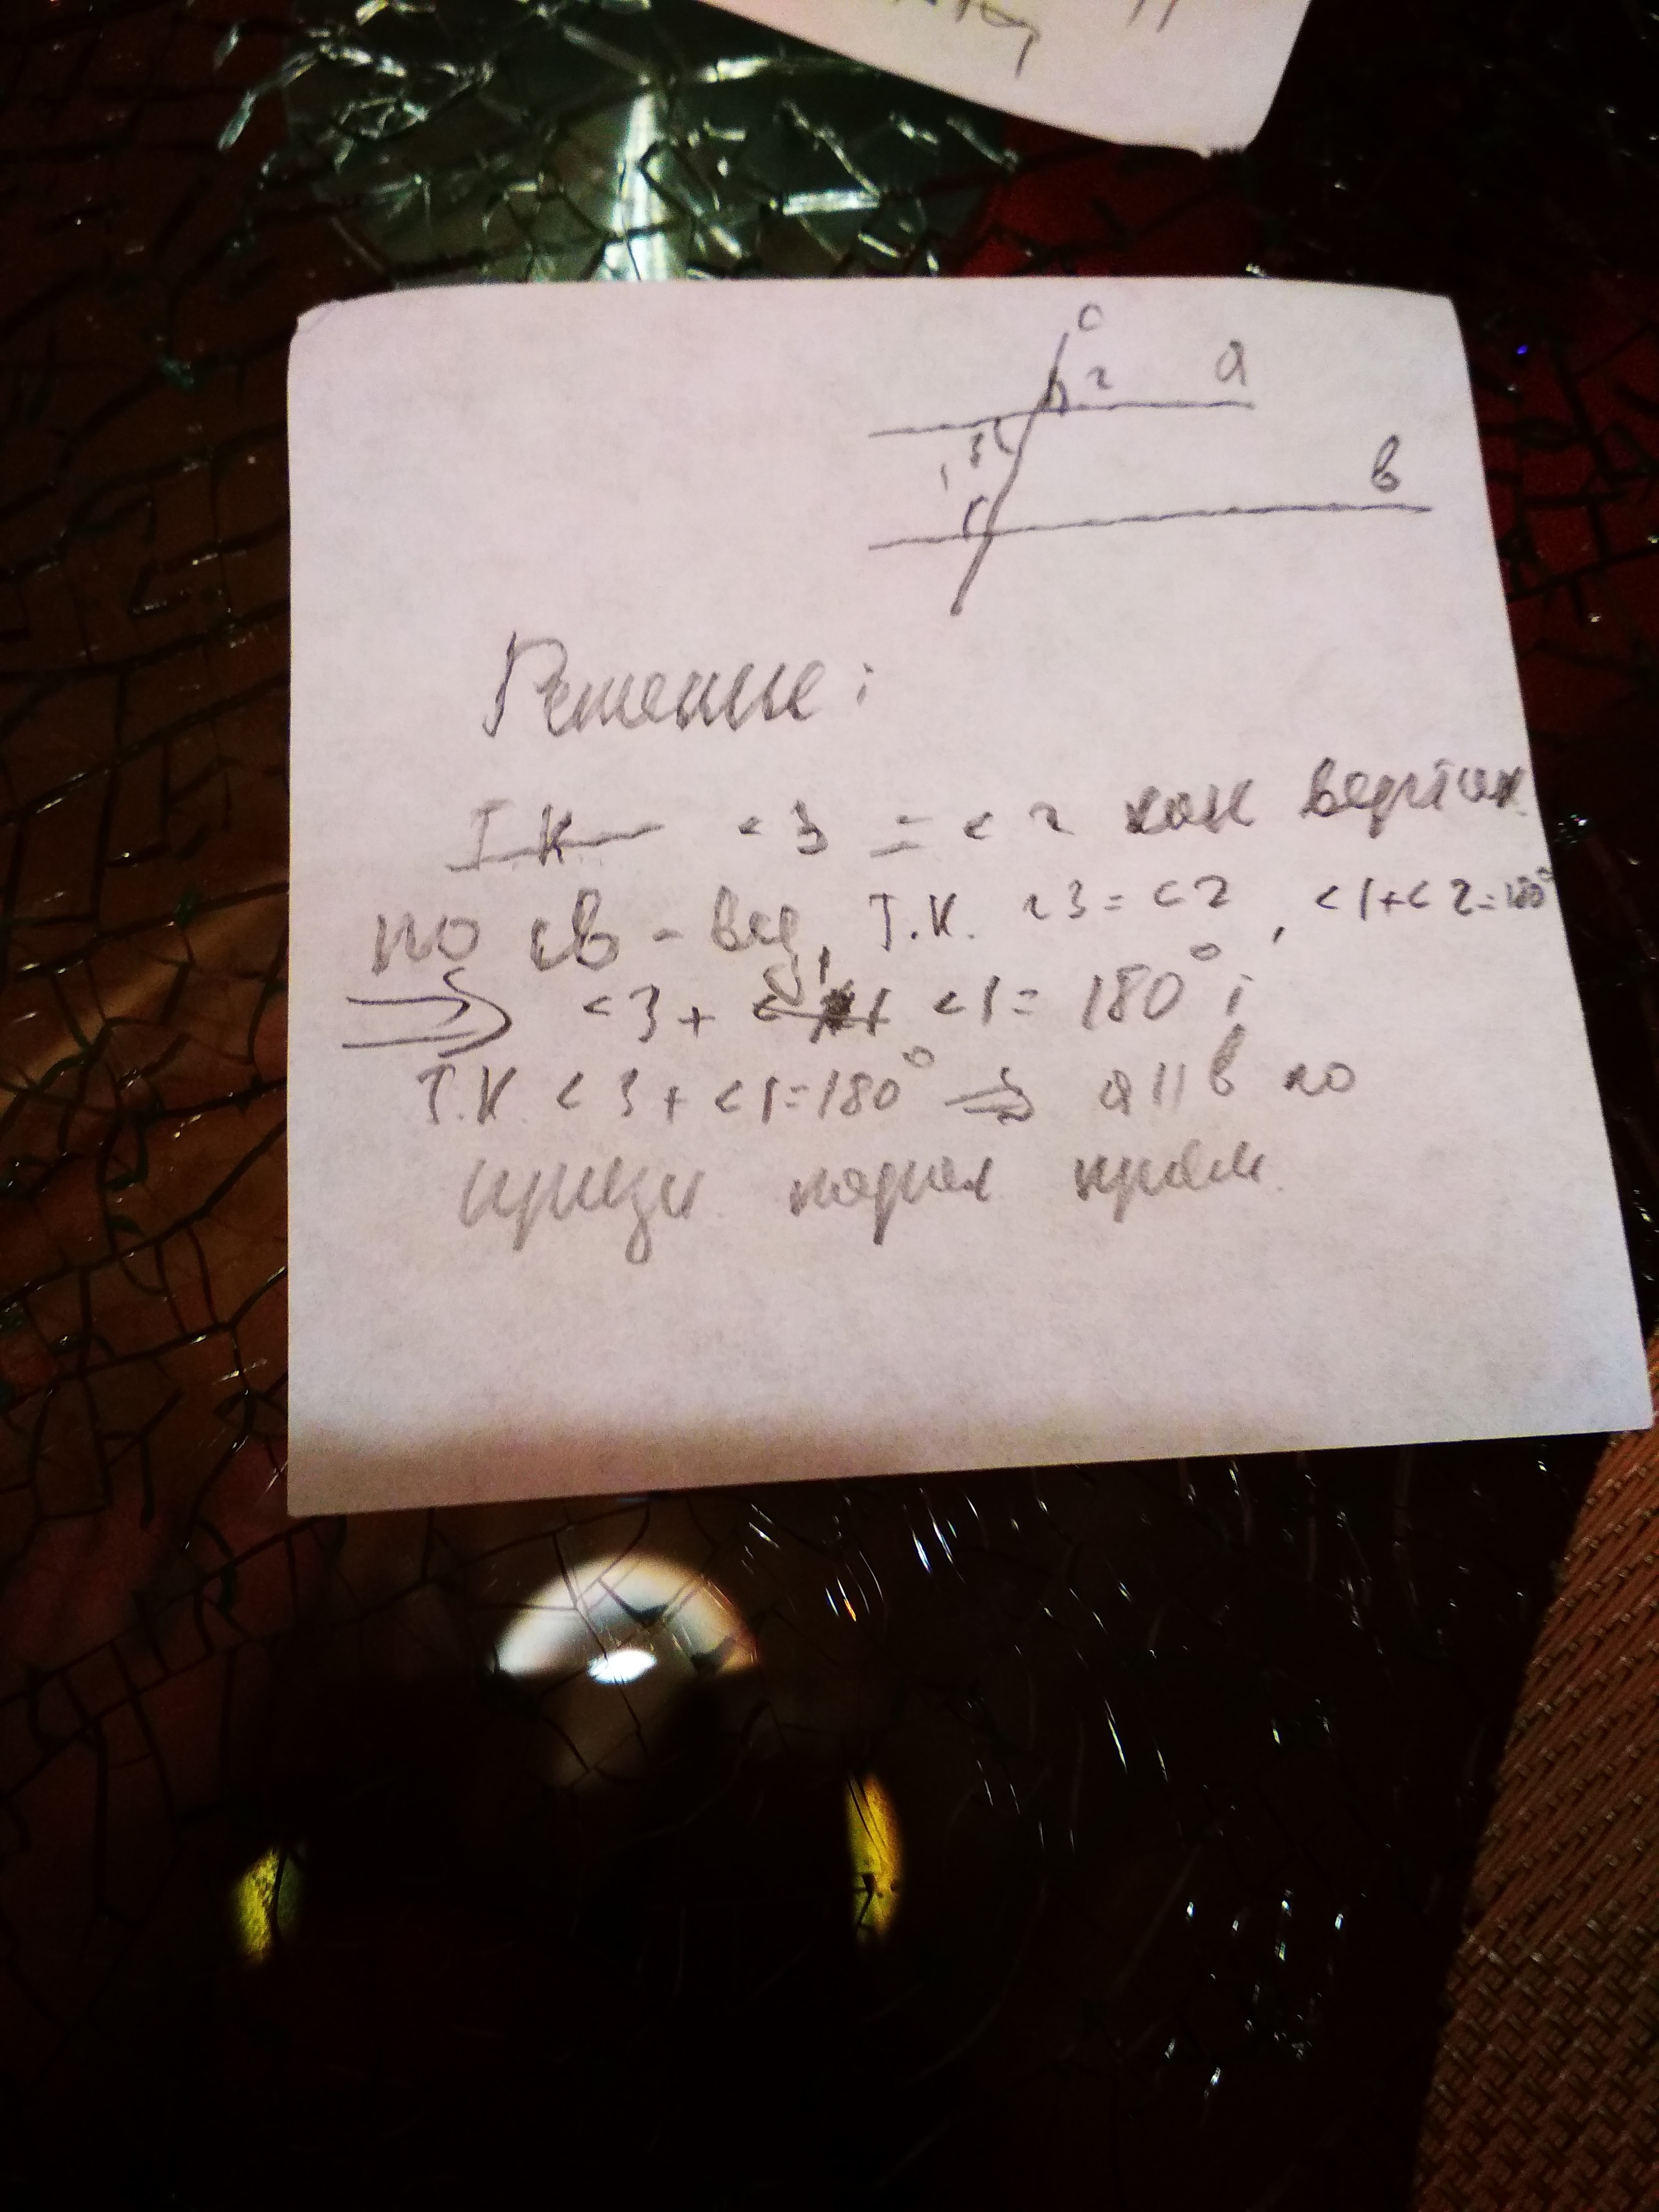 c
2 a
3
1
в
Решение:
Т.К. <3 = <2 как вертик.
по св-ву, т.к. <3=<2, <1+<2=180°
=> <3+ <1=180°;
т.к. <3+<1=180° => a||в по
парал прям.